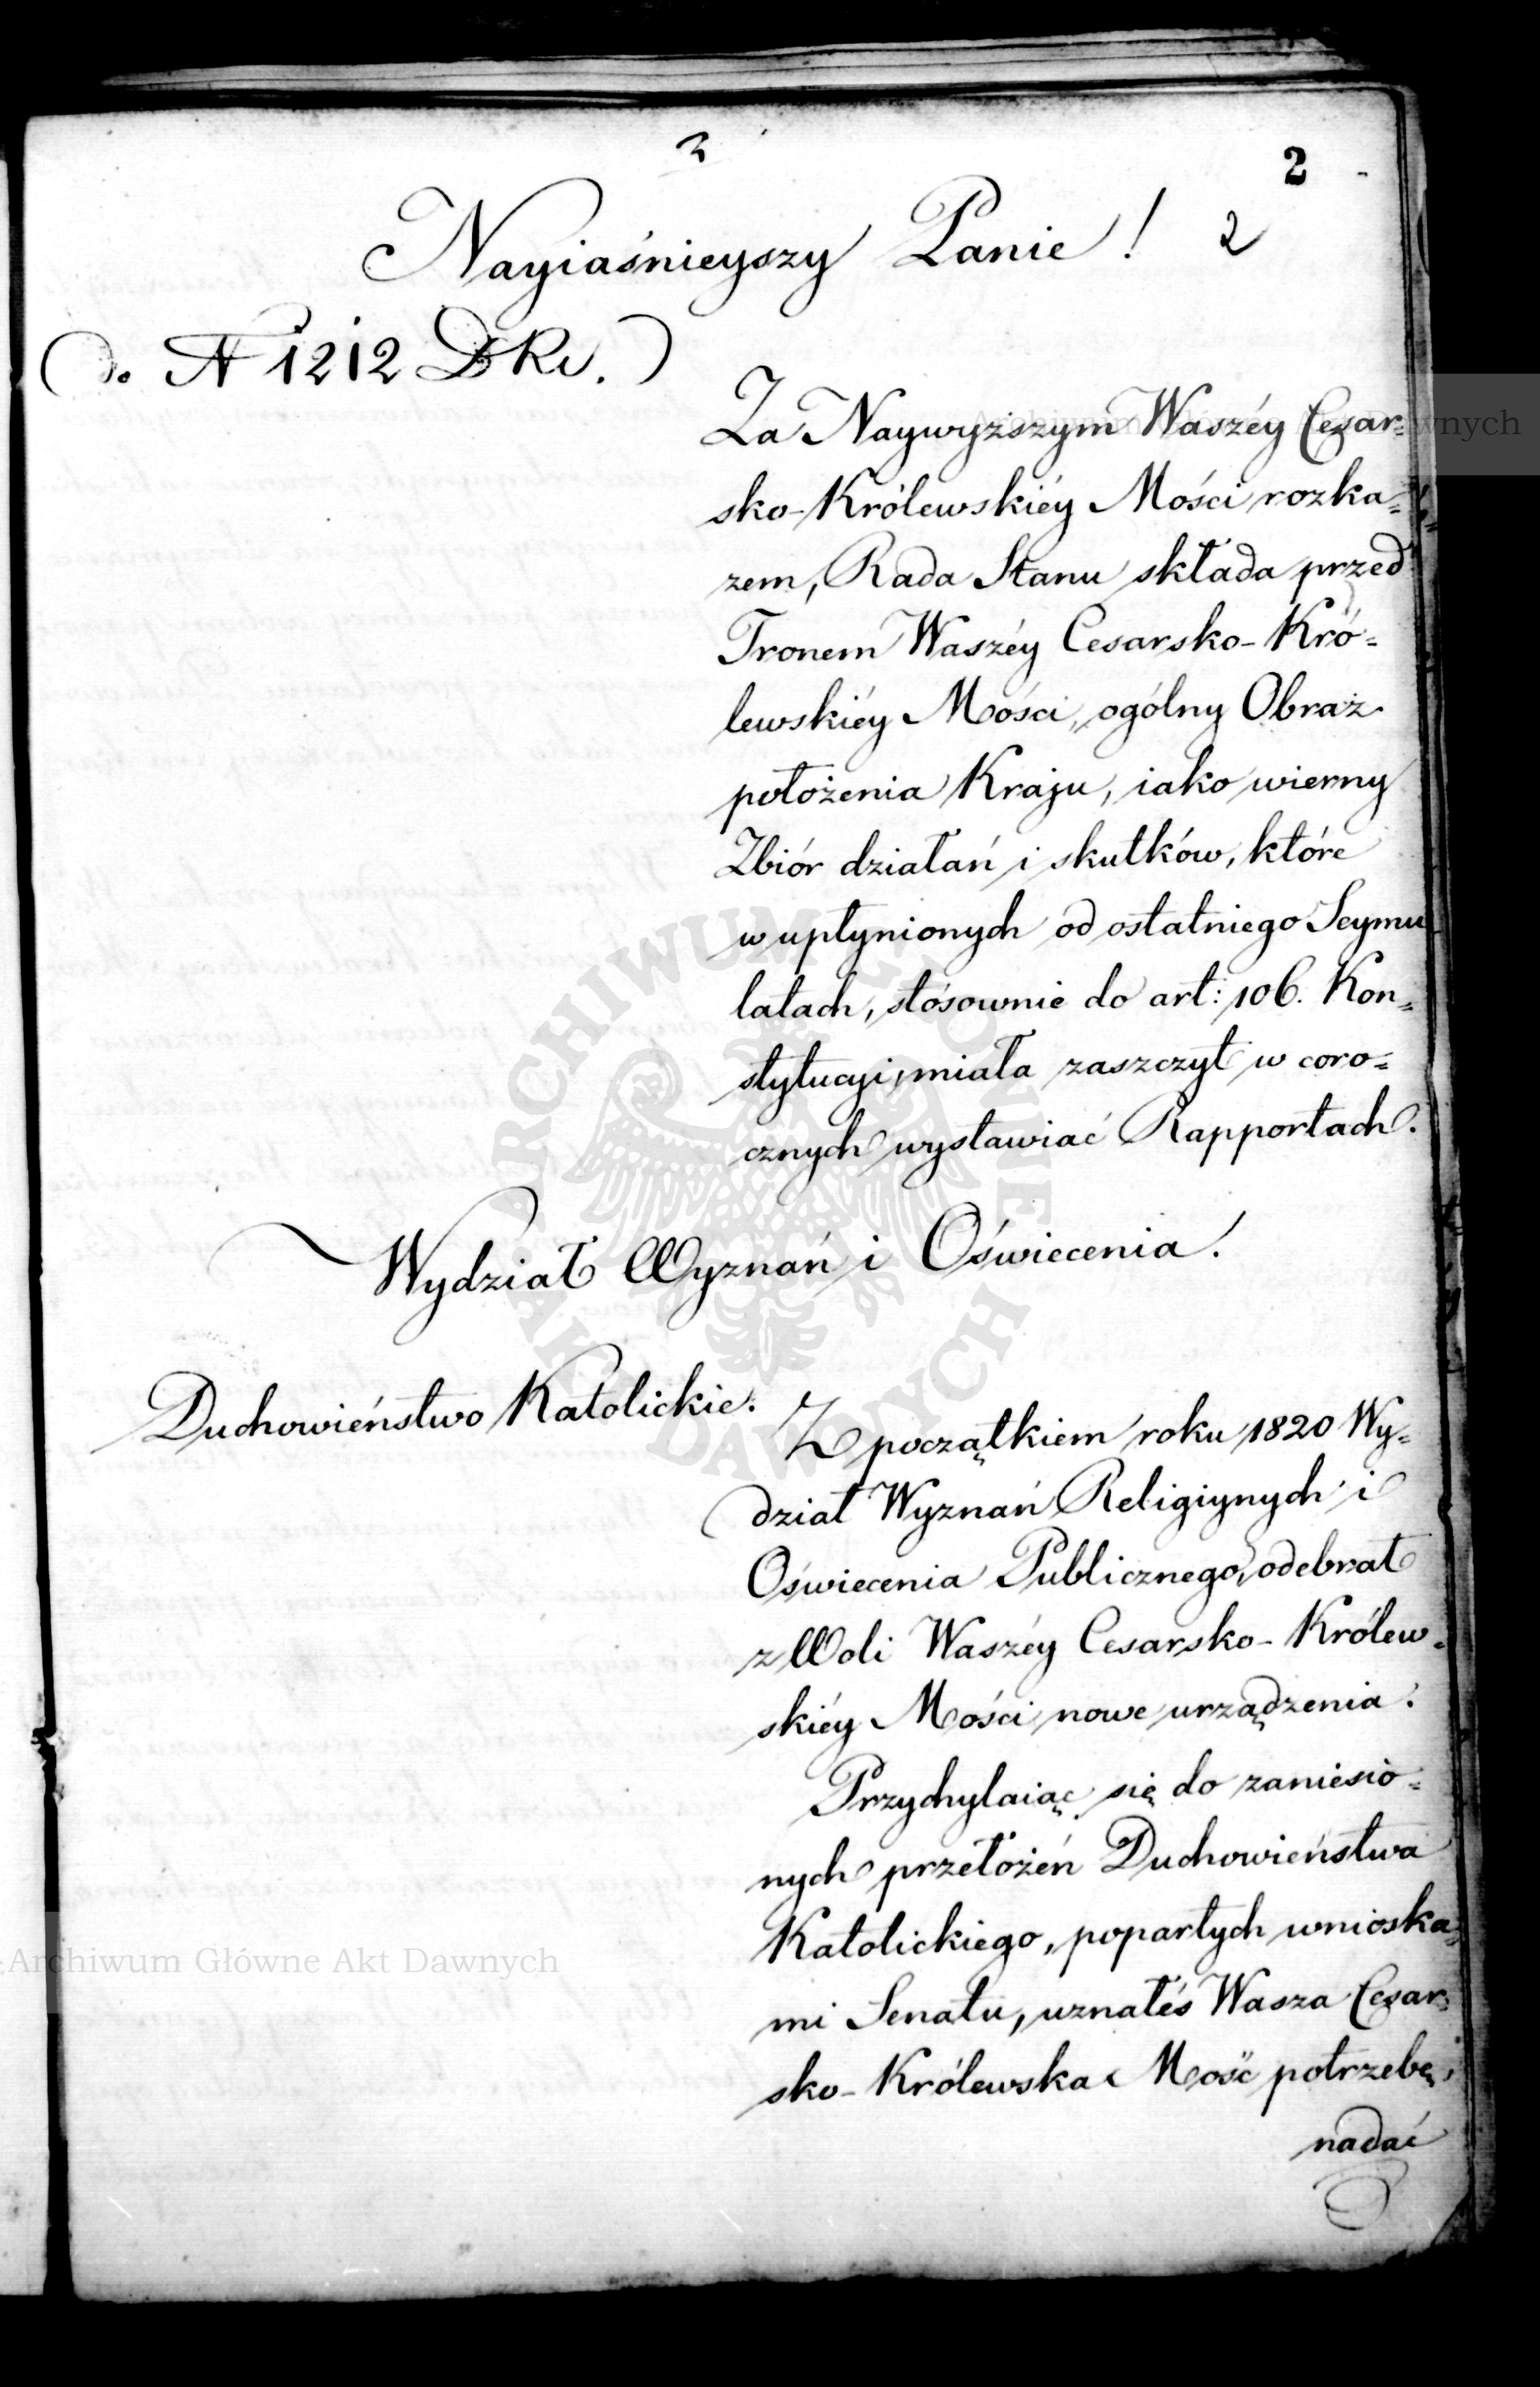 3
2
Nayiaśnieyszy Panie! 2
(do N 1212 DRu.)
Za Naywyższym Waszéy Cesar=
sko-Królewskiéy Mości rozka=
zem, Rada Stanu składa przed
Tronem Waszéy Cesarsko-Kró=
lewskiéy Mości, ogólny Obraz
położenia Kraju, iako wierny
Zbiór działań i skutków, które
w upłynionych od ostatniego Seymu
latach, stósownie do art: 106. Kon=
stytucyi, miała zaszczyt w coro=
cznych wystawiać Rapportach.
Wydział Wyznań i Oświecenia.
Duchowieństwo Katolickie.
Z początkiem roku 1820 Wy=
dział Wyznań Religiynych i
Oświecenia Publicznego, odebrał
z Woli Waszéy Cesarsko-Królew=
skiéy Mości nowe urządzenia.
Przychylaiąc się do zaniesio=
nych przełożeń Duchowieństwa
Katolickiego, popartych wnioska=
mi Senatu, uznałeś Wasza Cesar=
sko-Królewska Mość potrzebę,
nadać
Archiwum Główne Akt Dawnych
Archiwum Główne Akt Dawnych
ARCHIWUM GŁÓWNE AKT DAWNYCH